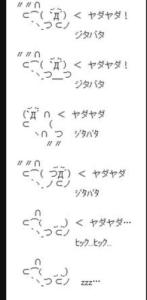 < ヤダヤダ!
ジタバタ
< ヤダヤダ!
ジタバタ
< ヤダヤダ
ジタバタ
< ヤダヤダ
ジタバタ
< ヤダヤダ…
ヒック..ヒック..
zzz…